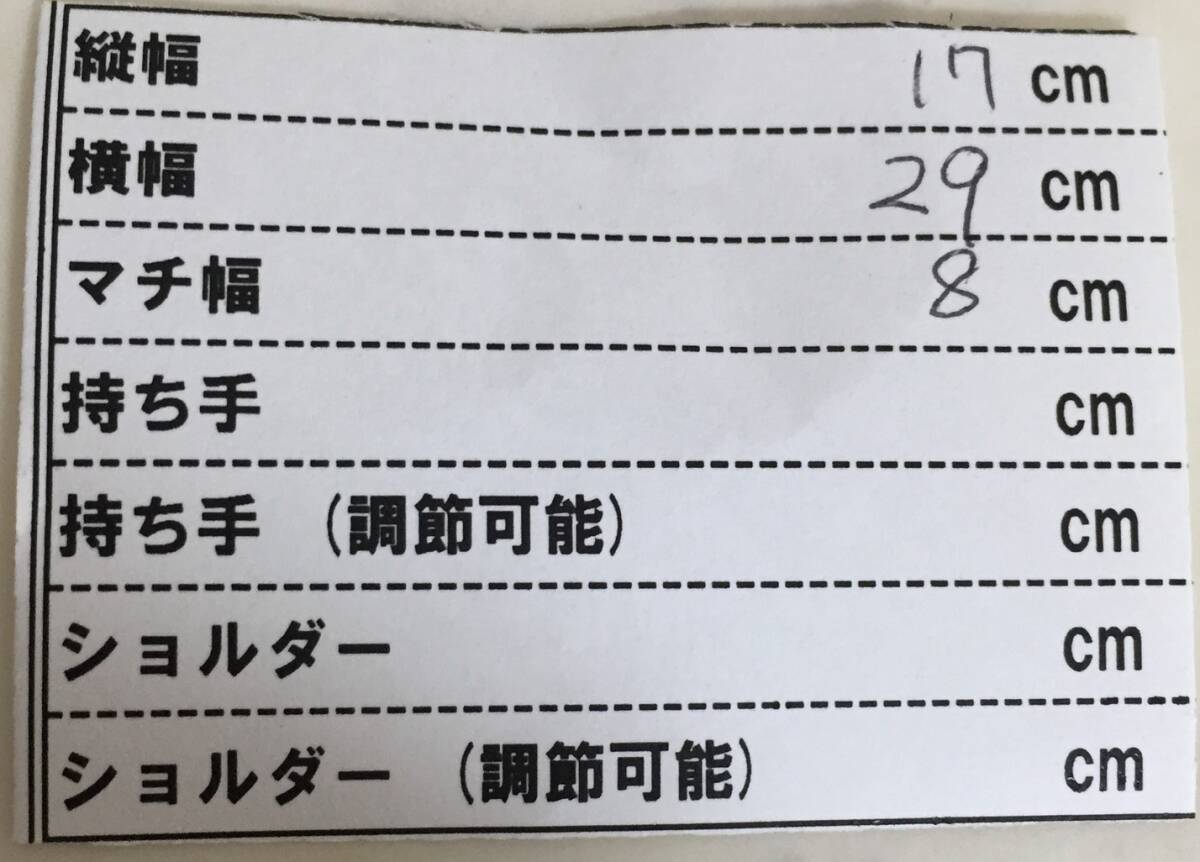 縦幅 17 cm
横幅 29 cm
マチ幅 8 cm
持ち手 cm
持ち手 (調節可能) cm
ショルダー cm
ショルダー (調節可能) cm